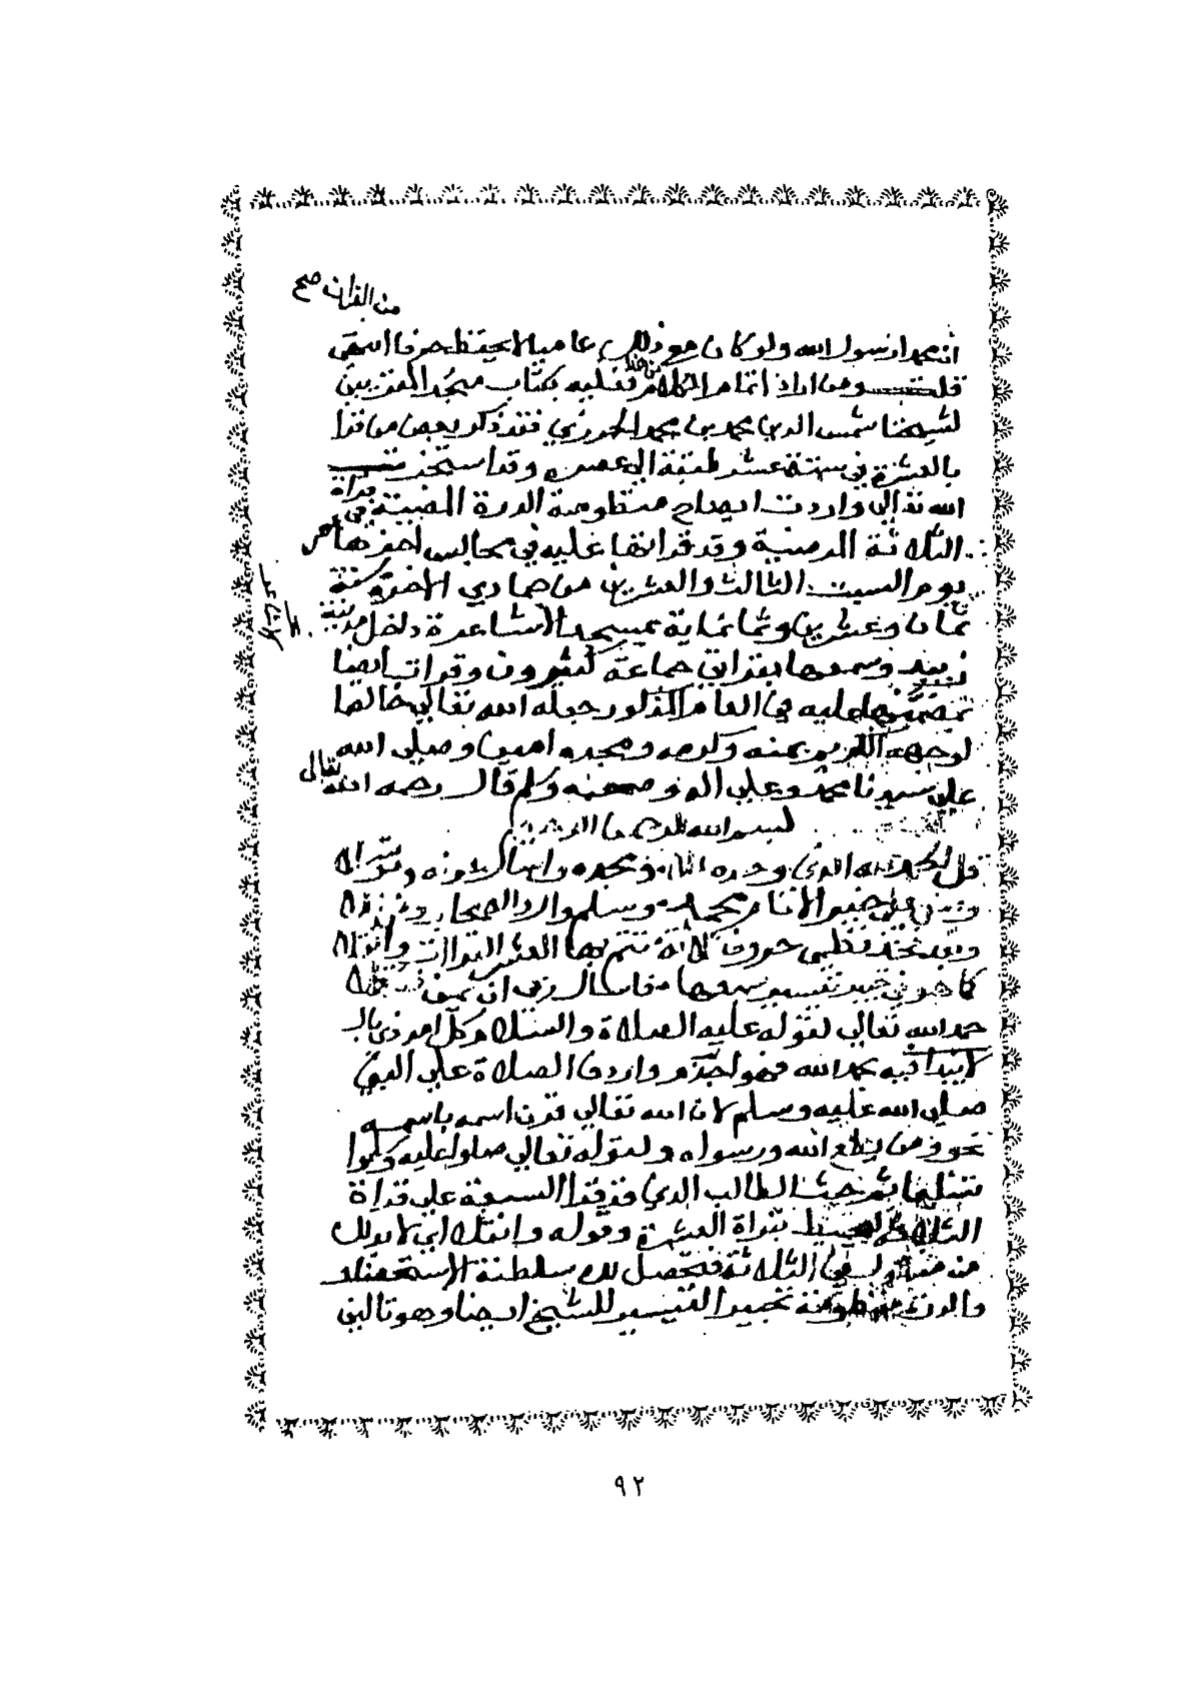 من القران صح
ان محمدا رسول الله ولو كان مع ذلك عاميا لا يحفظ حرفا انتهى
قلت ومن اراد اتمام الكلام فعليه بكتاب منجد المقربين
لشيخنا شمس الدين محمد بن محمد الجزري فقد ذكر بعض من قرا
بالعشرة في ستة عشر طبقة الى عصره وقد استخرت
الله تعالى واردت ايضاح منظومة الدرة المضية في قراة
الثلاثة المرضية وقد قراتها عليه في مجالس اخرها
يوم السبت الثالث والعشرين من جمادي الاخرة سنة
ثمان وعشرين وثمانماية بمسجد الاشاعرة داخل مدينة
زبيد وسمعها بقراتي جماعة كثيرون وقرات ايضا
عليه في العام المذكور جعله الله تعالى خالصا
لوجهه الكريم بمنه وكرمه ومجده امين وصلى الله
على سيدنا محمد وعلى اله وصحبه وسلم قال رحمه الله تعالى
بسم الله الرحمن الرحيم
قل الحمد لله الذي وحده علا ومجده واسال عونه وتوسلا
وصل على خير الانام محمد وسلم وال والصحاب ومن تلا
وبعد فخذ نظمي حروف ثلاثة تتم بها العشر القراات وانقلا
كما هو في تحبير تيسير سبعها فاسال ربي ان يمن فتكملا
حمد الله تعالى لقوله عليه الصلاة والسلام كل امر ذي بال
لا يبدا فيه بحمد الله فهو اجذم واردف الصلاة على النبي
صلى الله عليه وسلم لان الله تعالى قرن اسمه باسمه
نحو ومن يطع الله ورسوله ولقوله تعالى صلوا عليه وسلموا
تسليما ثم حث الطالب الذي قد قرا السبعة على قراة
الثلاثة ليحيط بقراة العشرة وقوله وانقلا اي لا بد لك
من في الثلاثة فتحصل لك سلطنة الاستحضار
والدرة منظومة تحبير التيسير للشيخ ايضا وهو تاليف
٩٢